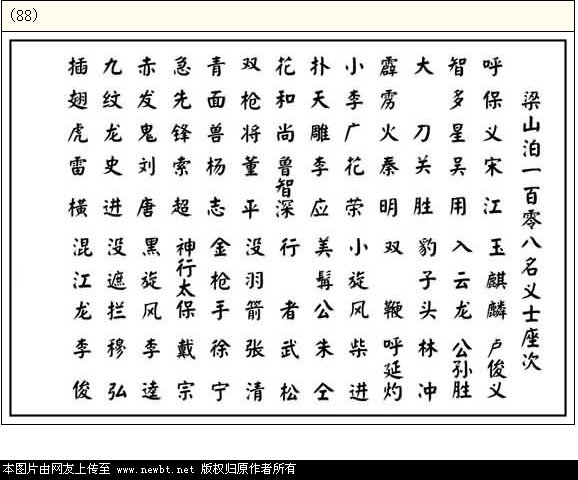 (88)
梁山泊一百零八名义士座次
呼保义宋江 玉麒麟卢俊义
智多星吴用 入云龙公孙胜
大刀关胜 豹子头林冲
霹雳火秦明 双鞭呼延灼
小李广花荣 小旋风柴进
扑天雕李应 美髯公朱仝
花和尚鲁智深 行者武松
双枪将董平 没羽箭张清
青面兽杨志 金枪手徐宁
急先锋索超 神行太保戴宗
赤发鬼刘唐 黑旋风李逵
九纹龙史进 没遮拦穆弘
插翅虎雷横 混江龙李俊
本图片由网友上传至 www.newbt.net 版权归原作者所有